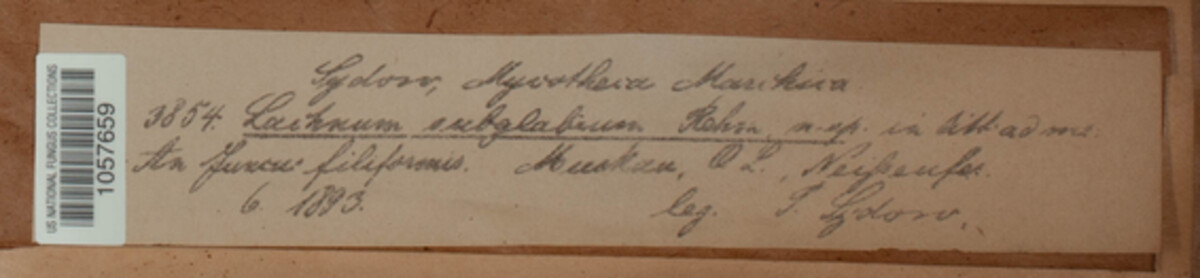 Sydow, Mycotheca Marchica
3854. Lachnum subglabrum Rehm, n. sp. in litt. ad me.
An Juncus filiformis. Muskau, O. L., Neißeufer.
6. 1893. leg. P. Sydow.
US NATIONAL FUNGUS COLLECTIONS
1057659